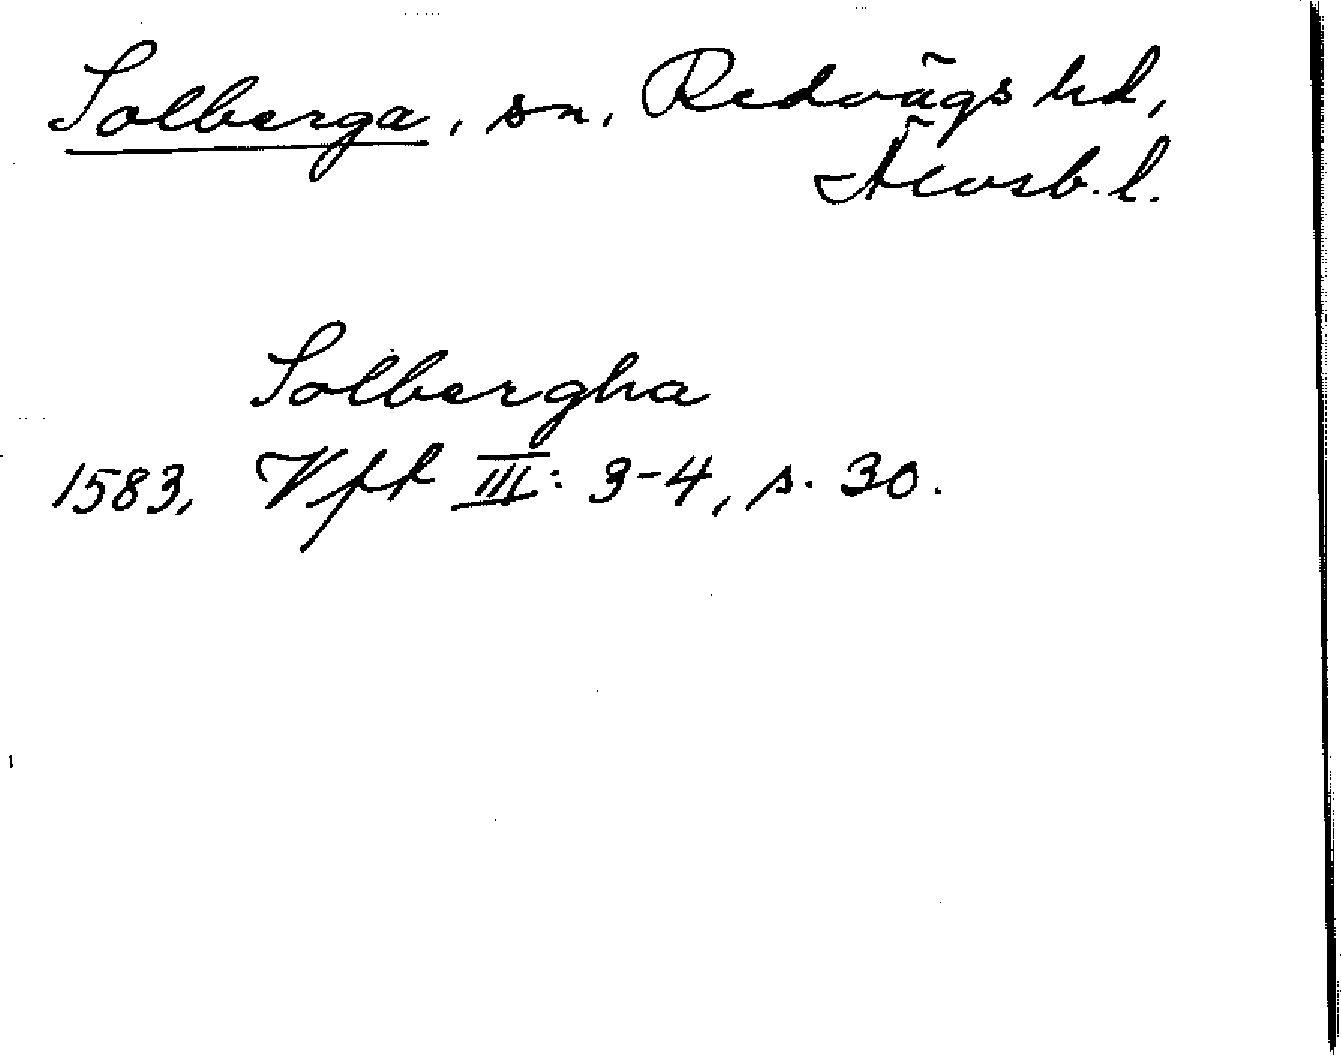 Solberga, sn, Redvägs hd,
Älvsb. l.
Solbergha
1583, Vfft III: 3-4, s. 30.